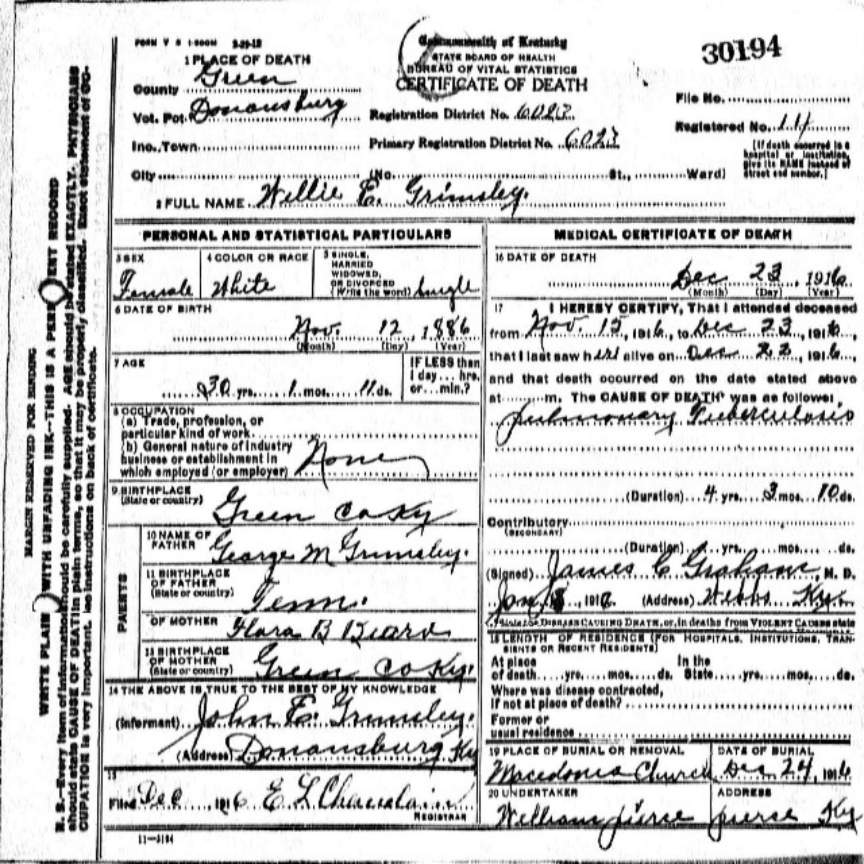 FORM V S 1-500M 3-29-12
Commonwealth of Kentucky
STATE BOARD OF HEALTH
BUREAU OF VITAL STATISTICS
CERTIFICATE OF DEATH
30194
1 PLACE OF DEATH
County Green
Vot. Pct. Donansburg
Inc. Town
City (No. St., Ward)
Registration District No. 6023
Primary Registration District No. 6023
File No.
Registered No. 114
[If death occurred in a hospital or institution, give its NAME instead of street and number.]
2 FULL NAME Willie E. Grimsley.
PERSONAL AND STATISTICAL PARTICULARS
3 SEX
Female
4 COLOR OR RACE
White
5 SINGLE, MARRIED WIDOWED, OR DIVORCED (Write the word) Single
6 DATE OF BIRTH
Nov. 12, 1886
(Month) (Day) (Year)
7 AGE
30 yrs. 1 mos. 11 ds.
IF LESS than
1 day... hrs.
or... min.?
8 OCCUPATION
(a) Trade, profession, or
particular kind of work
(b) General nature of industry
business or establishment in
which employed (or employer) None
9 BIRTHPLACE
(State or country)
Green Co Ky
PARENTS
10 NAME OF
FATHER George M Grimsley.
11 BIRTHPLACE
OF FATHER
(State or country) Tenn.
OF MOTHER Flora B Beard
13 BIRTHPLACE
OF MOTHER
(State or country) Green Co Ky.
14 THE ABOVE IS TRUE TO THE BEST OF MY KNOWLEDGE
(Informant) John E. Grimsley.
(Address) Donansburg Ky
15
Filed Dec 1916 E L
REGISTRAR
11-3184
MEDICAL CERTIFICATE OF DEATH
16 DATE OF DEATH
Dec 23, 1916
(Month) (Day) (Year)
17 I HEREBY CERTIFY, That I attended deceased
from Nov. 15, 1916, to Dec 23, 1916,
that I last saw her alive on Dec 22, 1916,
and that death occurred on the date stated above
at m. The CAUSE OF DEATH* was as follows:
Pulmonary Tuberculosis
(Duration) 4 yrs. 3 mos. 10 ds.
Contributory
(SECONDARY)
(Duration) yrs. mos. ds.
(Signed) James C Graham, M. D.
Jan 191 (Address) Webbs Ky.
*State the DISEASE CAUSING DEATH, or, in deaths from VIOLENT CAUSES state
18 LENGTH OF RESIDENCE (FOR HOSPITALS, INSTITUTIONS, TRANSIENTS OR RECENT RESIDENTS)
At place In the
of death yrs. mos. ds. State yrs. mos. ds.
Where was disease contracted,
if not at place of death?
Former or
usual residence
19 PLACE OF BURIAL OR REMOVAL
Macedonia Church
DATE OF BURIAL
Dec 24, 1916
20 UNDERTAKER
William Pierce
ADDRESS
Pierce Ky
MARGIN RESERVED FOR BINDING
WRITE PLAINLY WITH UNFADING INK--THIS IS A PERMANENT RECORD
N. B.--Every item of information should be carefully supplied. AGE should be stated EXACTLY. PHYSICIANS
should state CAUSE OF DEATH in plain terms, so that it may be properly classified. Exact statement of OC-
CUPATION is very important. See instructions on back of certificate.